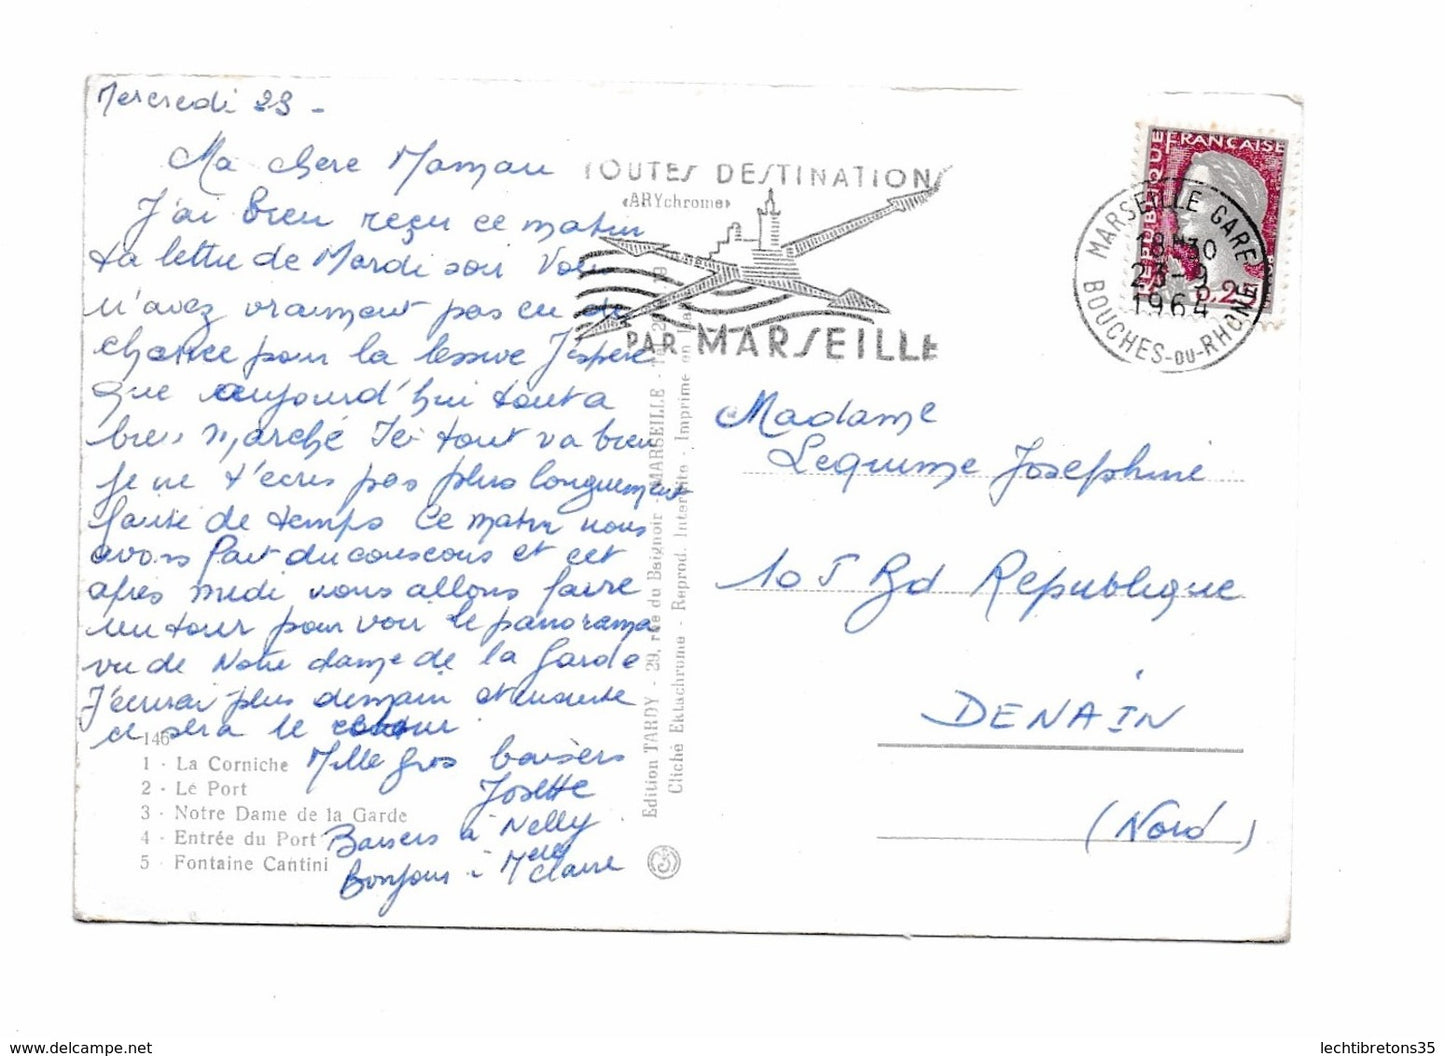 Mercredi 23 -
Ma chere Maman
J'ai bien reçu ce matin
ta lettre de Mardi soir Vous
n'avez vraiment pas eu de
chance pour la lessive J'espère
que aujourd'hui tout a
bien marché Ici tout va bien
je ne t'écris pas plus longuement
faute de temps Ce matin nous
avons fait du couscous et cet
après midi nous allons faire
un tour pour voir le panorama
vu de Notre dame de la Garde
J'écrirai plus demain et ensuite
ce sera le retour.
Mille gros baisers
Josette
Baisers à Nelly
Bonjour à Mère Claire
146
1 - La Corniche
2 - Le Port
3 - Notre Dame de la Garde
4 - Entrée du Port
5 - Fontaine Cantini
Edition TARDY - 29, rue du Baignoir - MARSEILLE -
Cliché Ektachrome - Reprod. Interdite - Imprimé en
TOUTES DESTINATIONS
«ARYchrome»
PAR MARSEILLE
REPUBLIQUE FRANÇAISE
0,25
MARSEILLE GARE
18H30
23-9
1964
BOUCHES-DU-RHONE
Madame
Lequime Josephine
105 Bd Republique
DENAIN
(Nord)
www.delcampe.net
lechtibretons35